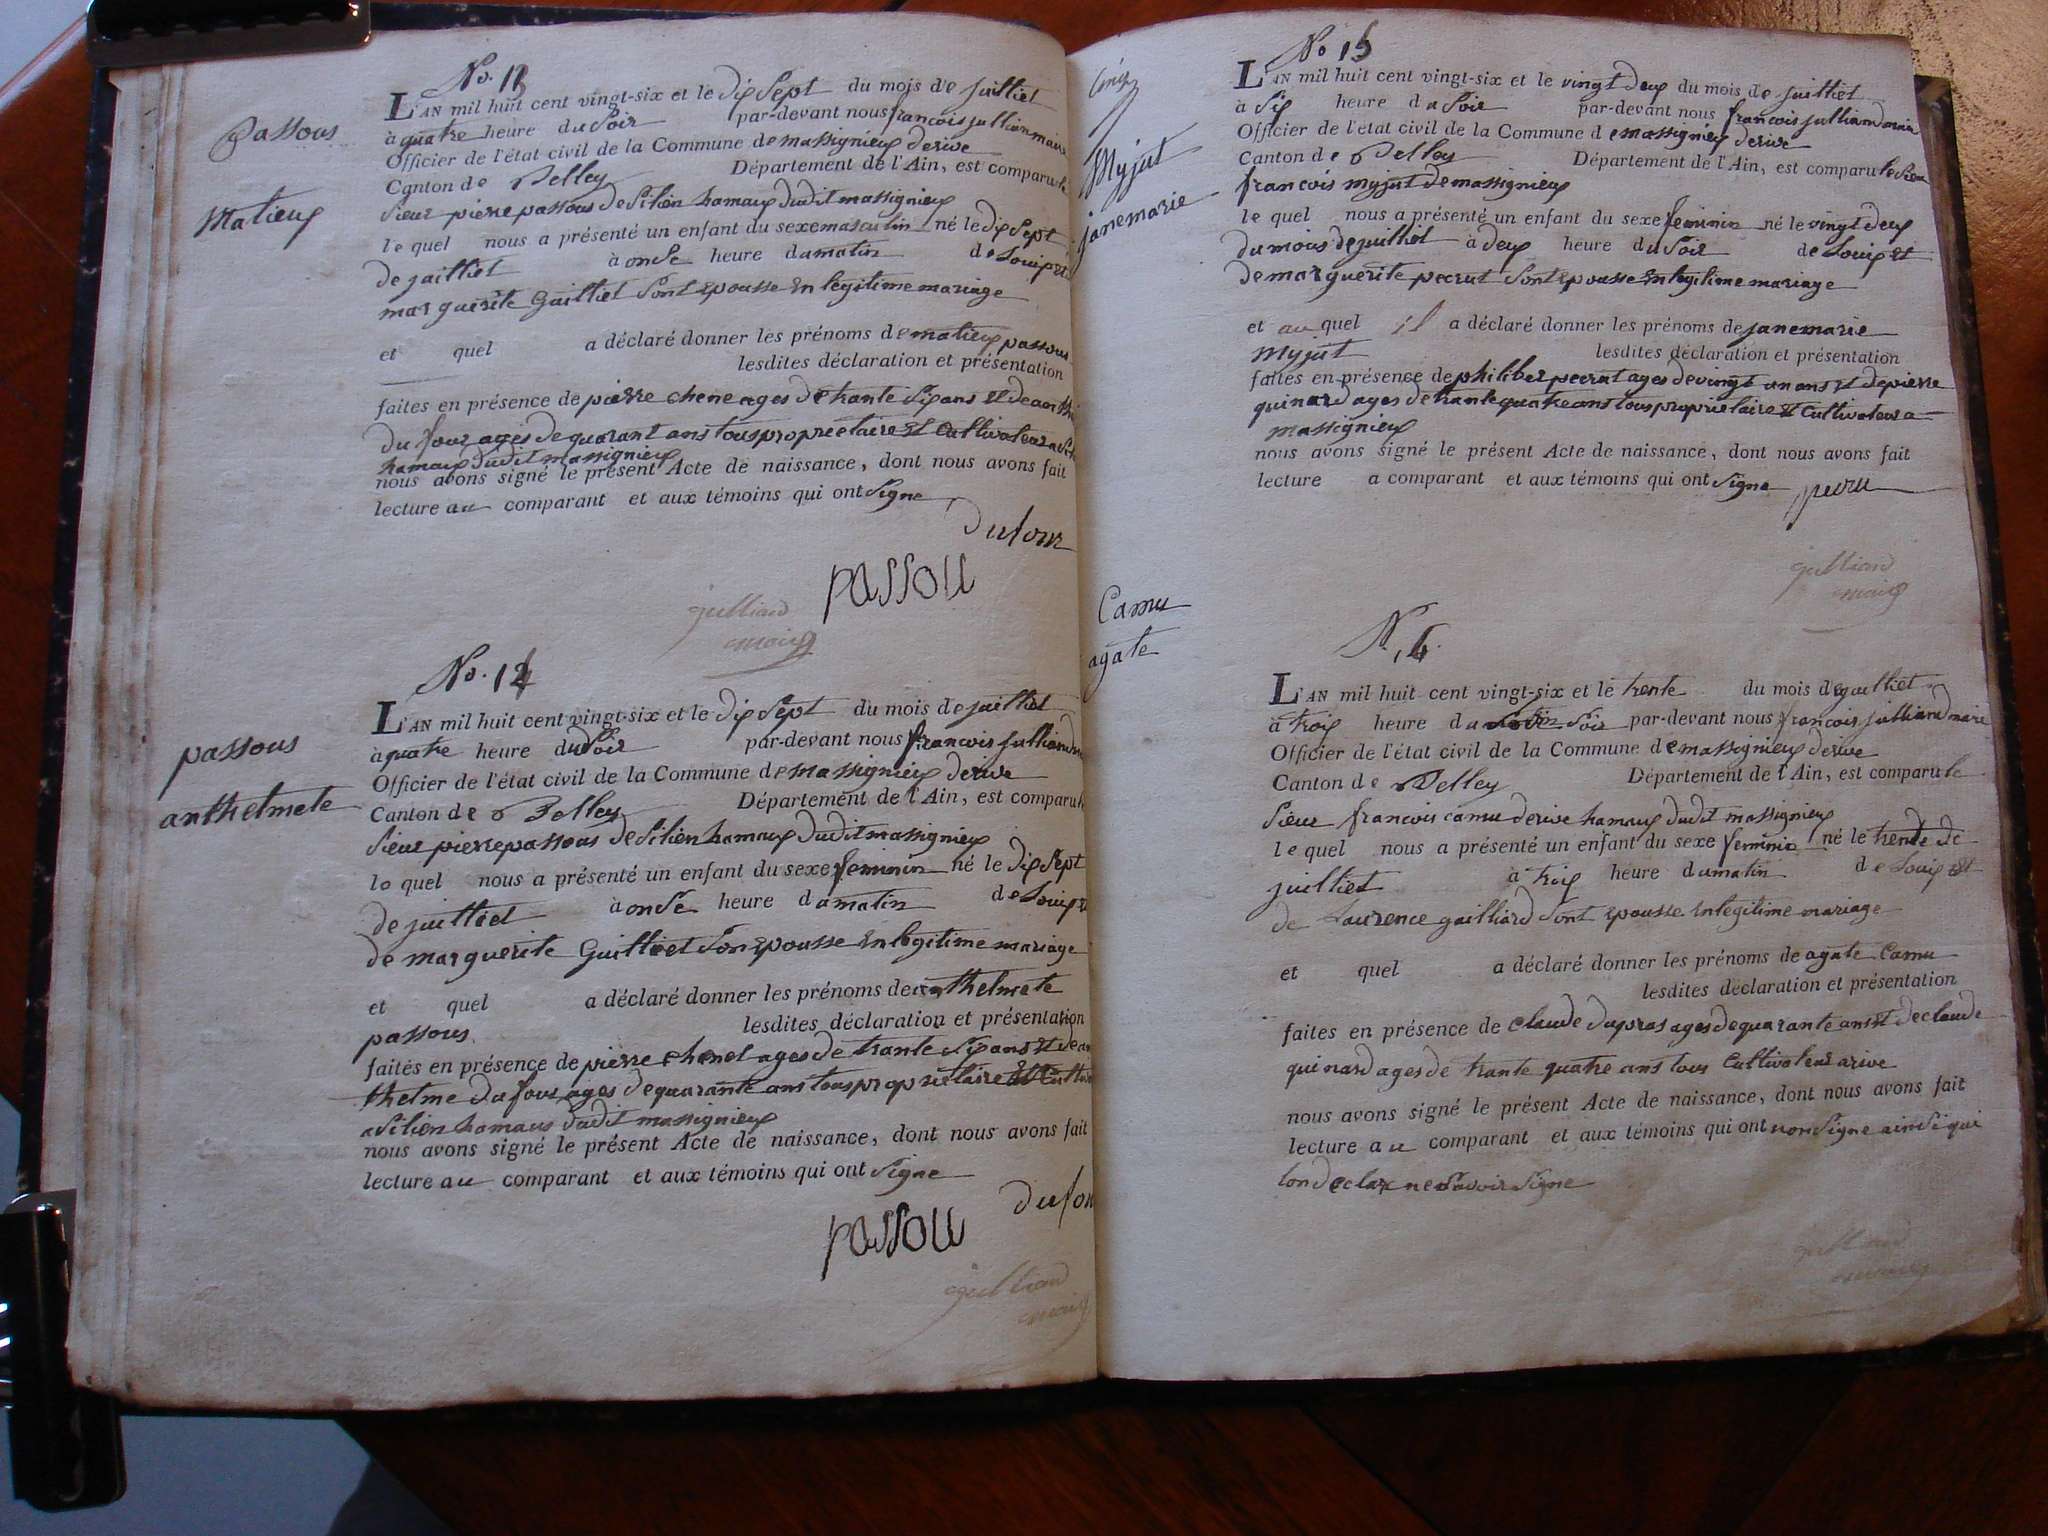 No. 13
Passous
Matieux
L'AN mil huit cent vingt-six et le dix Sept du mois de juilliet
à quatre heure du Soir par-devant nous francois jullian maire
Officier de l'état civil de la Commune de massignieux derive
Canton de Belley Département de l'Ain, est comparu le
Sieur pierre passous de Silien hamaux dudit massignieux
le quel nous a présenté un enfant du sexe masculin né le dix Sept
de juilliet à onse heure du matin de Louip et
marguerite Guilliet Sont Epousse En legitime mariage
et quel a déclaré donner les prénoms de matieux passous
lesdites déclaration et présentation
faites en présence de pierre chene ages de trante Six ans Et de anthe
du four ages de quarant ans tous proprietaire Et Cultivateur a Sili
hamaux dudit massignieux
nous avons signé le présent Acte de naissance, dont nous avons fait
lecture au comparant et aux témoins qui ont Signe
Dufour
passou
julliand
maire
No. 14
passous
anthelmete
L'AN mil huit cent vingt-six et le dix Sept du mois de juilliet
à quatre heure du Soir par-devant nous francois julliand
Officier de l'état civil de la Commune de massignieux derive
Canton de Belley Département de l'Ain, est comparu le
Sieur pierre passous de Silien hamaux dudit massignieux
le quel nous a présenté un enfant du sexe feminin né le dix Sept
de juilliet à onse heure du matin de Louip et
de marguerite Guilliet Son Epousse En legitime mariage
et quel a déclaré donner les prénoms de anthelmete
passous lesdites déclaration et présentation
faites en présence de pierre chenel ages de trante Six ans Et de an
thelme du four ages de quarante ans tous proprietaire Et Cultiv
a Silien hamaus dudit massignieux
nous avons signé le présent Acte de naissance, dont nous avons fait
lecture au comparant et aux témoins qui ont Signe
dufou
passou
julliand
maire
No 15
Myjut
janemarie
L'AN mil huit cent vingt-six et le vingt deux du mois de juilliet
à Six heure du Soir par-devant nous francois julliand maire
Officier de l'état civil de la Commune de massignieux derive
Canton de Belley Département de l'Ain, est comparu le Sieur
francois myjut de massignieux
le quel nous a présenté un enfant du sexe feminin né le vingt deux
du mois de juilliet à deux heure du Soir de Louip et
de marguerite pecrut Sont Epousse En legitime mariage
et au quel il a déclaré donner les prénoms de janemarie
myjut lesdites déclaration et présentation
faites en présence de philiber pecrut ages de vingt un ans Et de pierre
quinard ages de trante quatre ans tous proprietaire Et Cultivateur a
massignieux
nous avons signé le présent Acte de naissance, dont nous avons fait
lecture a comparant et aux témoins qui ont Signe
pecru
julliand
maire
N. 16.
Camu
agate
L'AN mil huit cent vingt-six et le trente du mois de juilliet
à troix heure du Soir par-devant nous francois julliand maire
Officier de l'état civil de la Commune de massignieux derive
Canton de Belley Département de l'Ain, est comparu le
Sieur francois camu derive hamaux dudit massignieux
le quel nous a présenté un enfant du sexe feminin né le trente de
juilliet à troix heure du matin de Louip Et
de Laurence gailliard Sont Epousse En legitime mariage
et quel a déclaré donner les prénoms de agate Camu
lesdites déclaration et présentation
faites en présence de claude dupras ages de quarante ans Et de claude
quinard ages de trante quatre ans tous Cultivateur a rive
nous avons signé le présent Acte de naissance, dont nous avons fait
lecture au comparant et aux témoins qui ont non Signe ainsi qui
lon declare ne Savoir Signe
julliand
maire